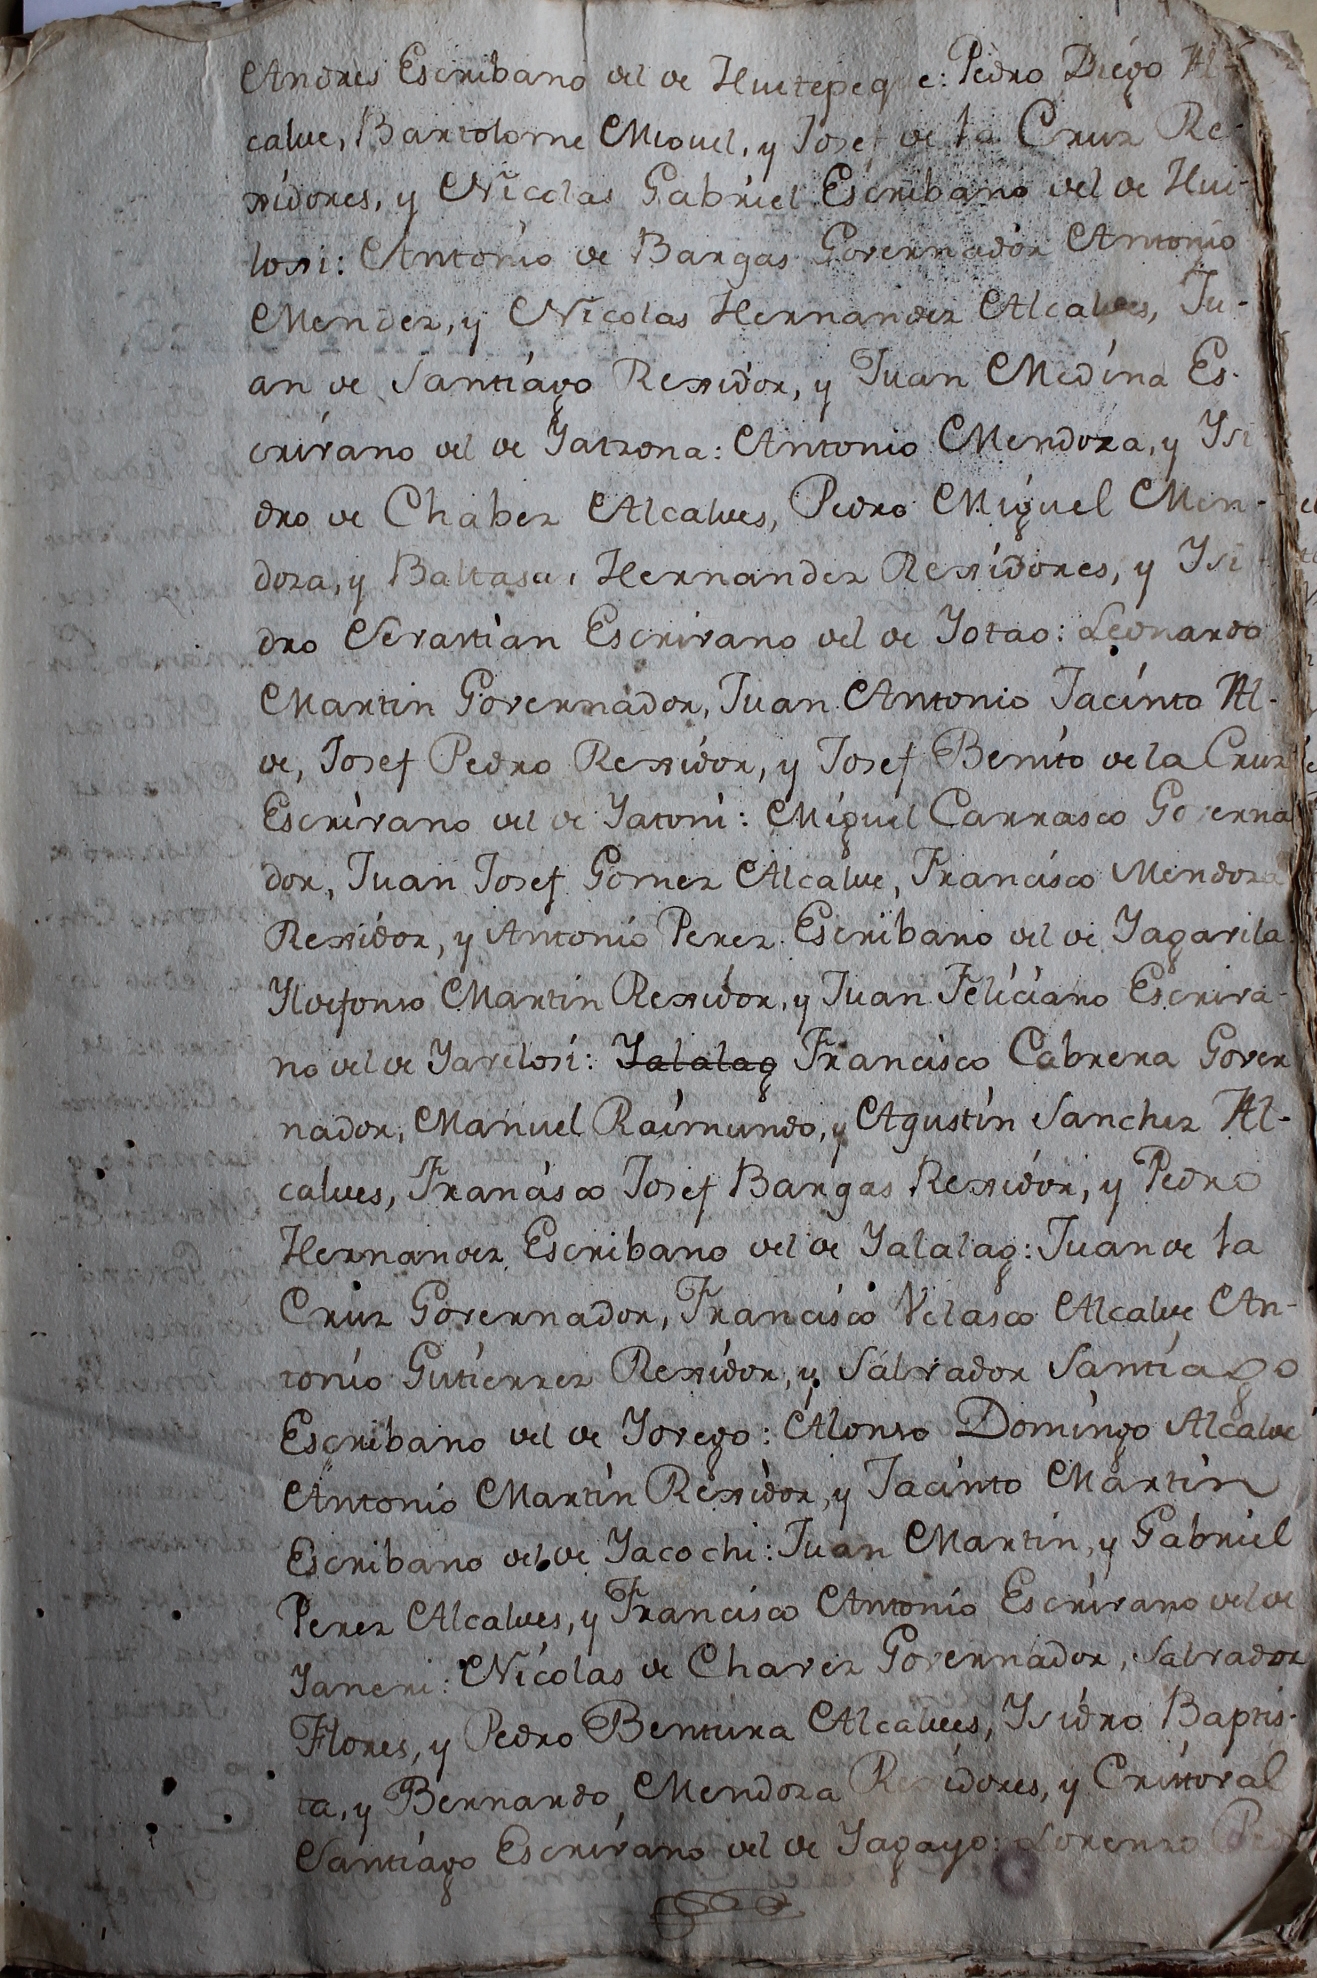 Andres Escribano del de Huitepeque: Pedro Diego Al-
calde, Bartolome Miguel, y Josef de la Cruz Re-
xidores, y Nicolas Gabriel Escribano del de Hui-
loxi: Antonio de Bargas Governador Antonio
Mendez, y Nicolas Hernandez Alcaldes, Ju-
an de Santiago Rexidor, y Juan Medina Es-
crivano del de Yatzona: Antonio Mendoza, y Ysi
dro de Chabez Alcaldes, Pedro Miguel Men-
doza, y Baltasar Hernandez Rexidores, y Ysi-
dro Sevastian Escrivano del de Yotao: Leonardo
Martin Governador, Juan Antonio Jacinto Al-
de, Josef Pedro Rexidor, y Josef Benito de la Cruz
Escrivano del de Yatoni: Miguel Carrasco Governa
dor, Juan Josef Gomez Alcalde, Francisco Mendoza
Rexidor, y Antonio Perez Escribano del de Yagavila:
Yldefonso Martin Rexidor, y Juan Feliciano Escriva-
no del de Yaveloxi: Yalalag Francisco Cabrera Gover
nador, Manuel Raimundo, y Agustin Sanchez Al-
caldes, Francisco Josef Bargas Rexidor, y Pedro
Hernandez Escribano del de Yalalag: Juan de la
Cruz Governador, Francisco Velasco Alcalde An-
tonio Gutierrez Rexidor, y Salvador Santiago
Escribano del de Yovego: Alonso Domingo Alcalde
Antonio Martin Rexidor, y Jacinto Martin
Escribano del de Yacochi: Juan Martin, y Gabriel
Perez Alcaldes, y Francisco Antonio Escrivano del de
Yaneri: Nicolas de Chavez Governador, Salvador
Flores, y Pedro Bentura Alcaldes, Ysidro Baptis-
ta, y Bernardo Mendoza Rexidores, y Cristoval
Santiago Escrivano del de Yagayo: Lorenzo